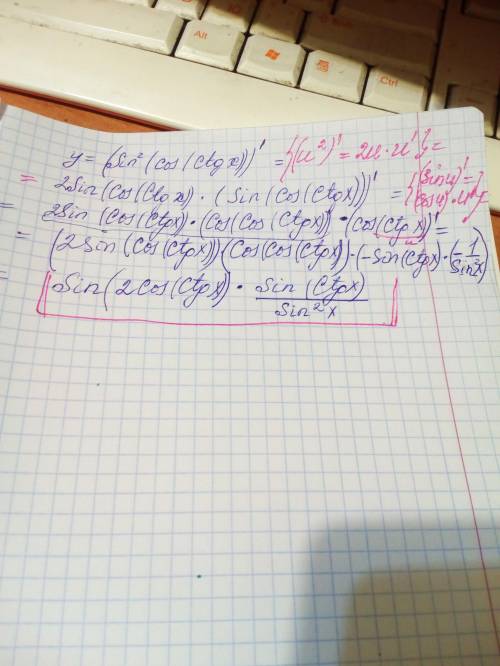 Alt
Ctrl
y = (Sin²(cos(ctgx)))' = {(u²)' = 2u·u'} =
= 2Sin(Cos(Ctgx)·(Sin(Cos(Ctgx)))' = {(sin u)' = cos u·u'} =
= 2Sin(Cos(Ctgx)·(Cos(Cos(Ctgx))·(cos(ctgx)' =
= (2Sin(Cos(Ctgx)))(Cos(Cos(Ctgx))·(-Sin(Ctgx)·(-1/Sin²x)
= Sin(2Cos(Ctgx))·Sin(Ctgx)/Sin²x